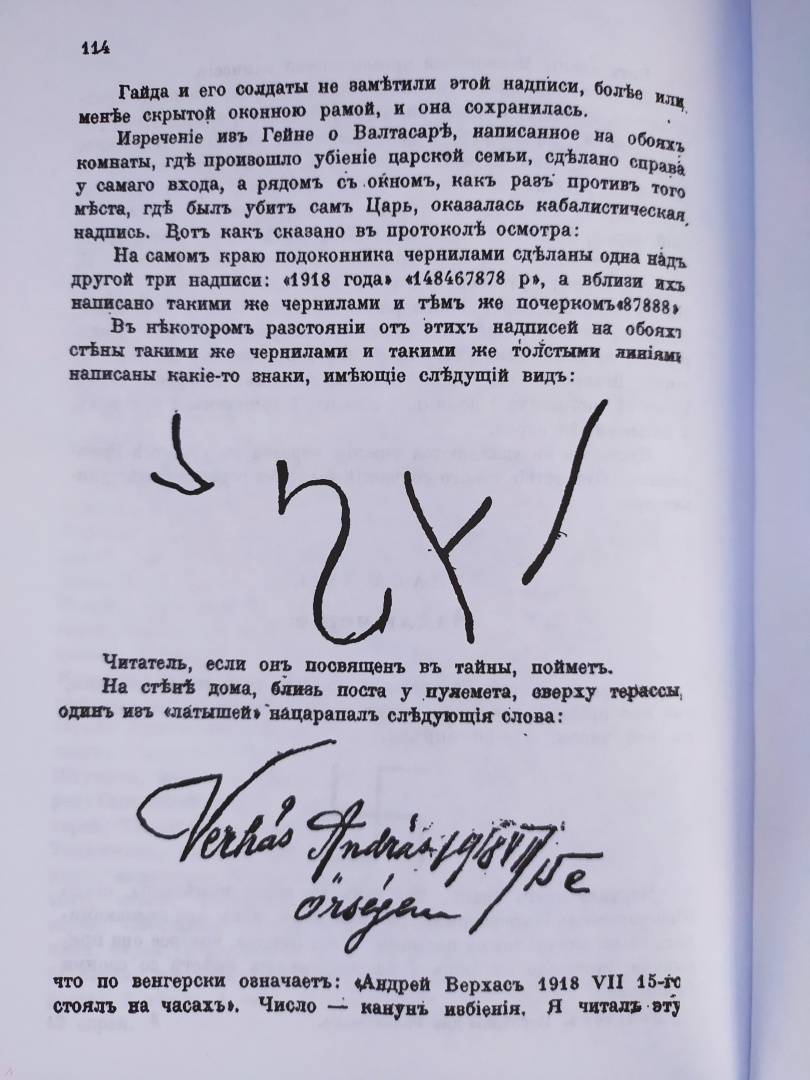 114
Гайда и его солдаты не замѣтили этой надписи, болѣе или
менѣе скрытой оконною рамой, и она сохранилась.
Изреченіе изъ Гейне о Валтасарѣ, написанное на обояхъ
комнаты, гдѣ произошло убіеніе царской семьи, сдѣлано справа
у самаго входа, а рядомъ съ окномъ, какъ разъ противъ того
мѣста, гдѣ былъ убитъ самъ Царь, оказалась кабалистическая
надпись. Вотъ какъ сказано въ протоколѣ осмотра:
На самомъ краю подоконника чернилами сдѣланы одна надъ
другой три надписи: «1918 года» «148467878 р», а вблизи ихъ
написано такими же чернилами и тѣмъ же почеркомъ «87888»
Въ нѣкоторомъ разстояніи отъ этихъ надписей на обояхъ
стѣны такими же чернилами и такими же толстыми линіями
написаны какіе-то знаки, имѣющіе слѣдущій видъ:
Читатель, если онъ посвященъ въ тайны, пойметъ.
На стѣнѣ дома, близь поста у пулемета, сверху терассы,
одинъ изъ «латышей» нацарапалъ слѣдующія слова:
Verhás András 1918 VII 15 e
örségen
что по венгерски означаетъ: «Андрей Верхасъ 1918 VII 15-го
стоялъ на часахъ». Число — канунъ избіенія. Я читалъ эту